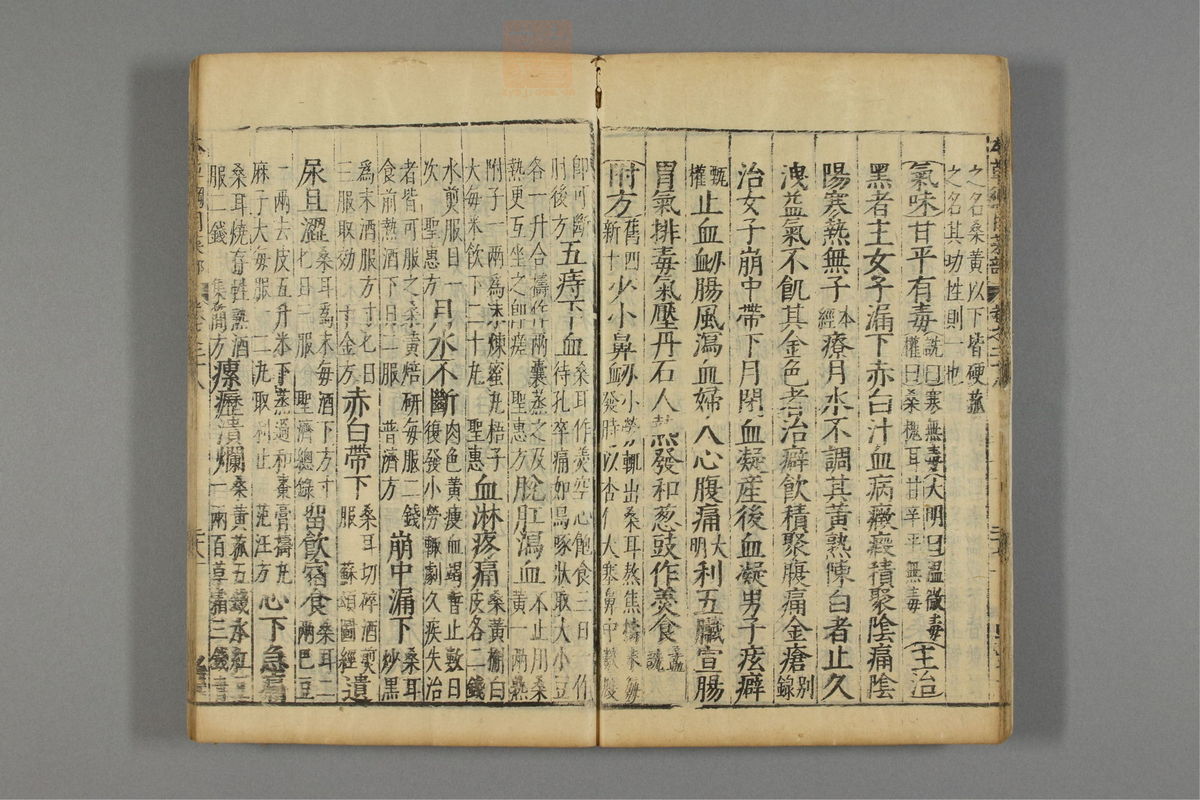 之名桑黃以下皆硬菰
之名其功性則一也
氣味甘平有毒詵曰寒無毒大明曰溫微毒
權曰桑槐耳甘辛平無毒主治
黑者主女子漏下赤白汁血病癥瘕積聚陰痛陰
陽寒熱無子本經療月水不調其黃熟陳白者止久
洩益氣不飢其金色者治癖飲積聚腹痛金瘡別錄
治女子崩中帶下月閉血凝產後血凝男子痃癖
甄權止血衂腸風瀉血婦人心腹痛大明利五臟宣腸
胃氣排毒氣壓丹石人熱發和葱豉作羹食孟詵
附方舊四新十少小鼻衂小勞輒出桑耳熬焦擣末每
發時以杏仁大塞鼻中數度
即可斷
肘後方五痔下血桑耳作羹空心飽食三日一作
待孔卒痛如鳥啄狀取大小豆
各一升合擣作兩囊蒸之及
熱更互坐之即瘥 聖惠方脫肛瀉血不止用桑
黃一兩熟
附子一兩爲末煉蜜丸梧子
大每米飲下二十丸 聖惠血淋疼痛桑黃槲白
皮各二錢
水煎服日一
次 聖惠方月水不斷肉色黃瘦血竭暫止數日
後發小勞輒劇久疾失治
者皆可服之桑黃焙研每服二錢
食前熱酒下日二服 普濟方崩中漏下桑耳
炒黑
爲末酒服方寸匕日
三服取效 千金方赤白帶下桑耳切碎酒煎
服 蘇頌圖經遺
尿且澀桑耳爲末每酒下方寸
匕日三服 聖濟總錄留飲宿食桑耳二
兩巴豆
一兩去皮五升米下蒸過和棗膏擣丸
麻子大每服一二丸取利止 范汪方心下急痛
桑耳燒存性熱酒
服二錢 集簡方瘰癧潰爛桑黃菰五錢水紅豆
一兩百草霜三錢